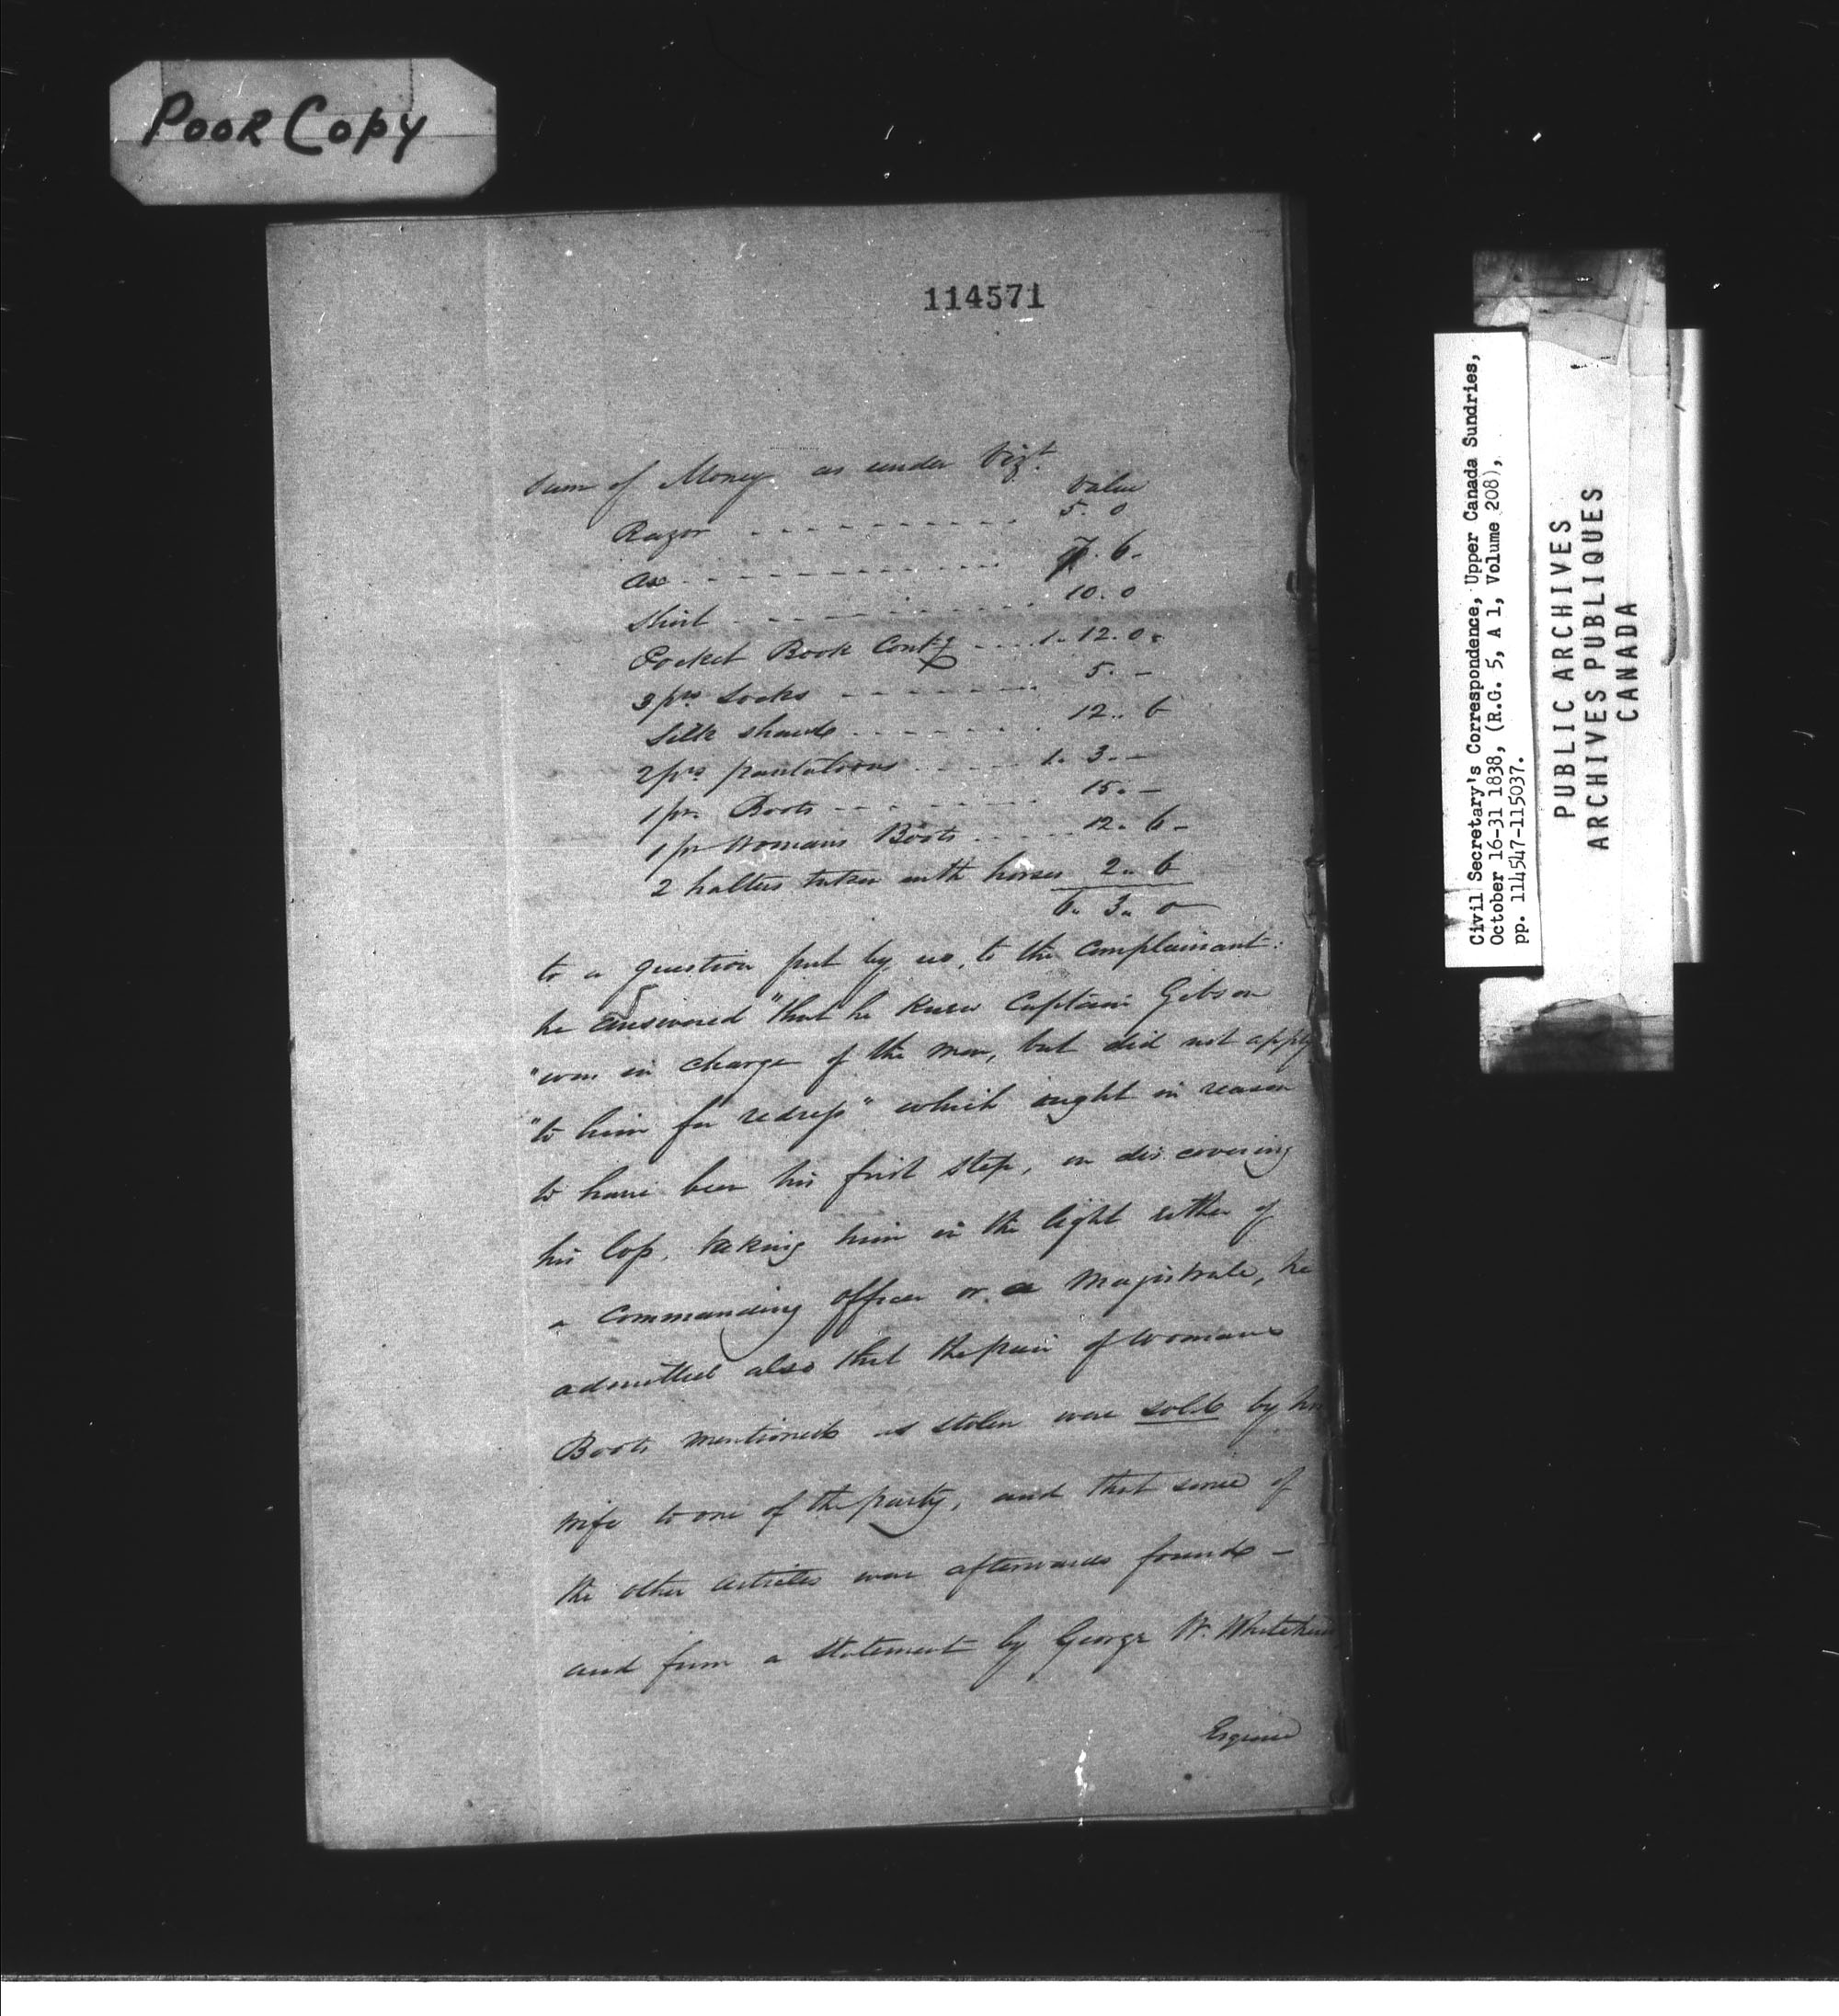 Poor Copy
114571
Sum of Money as under Vizt.
Value
Razor - - - - - - - - - - - 5. 0
ax - - - - - - - - - - - 7. 6.
Shirt - - - - - - - - - - - 10. 0
Pocket Book Contg - - - 1. 12. 0.
3 prs Socks - - - - - - - - 5. -
Silk shawl - - - - - - - 12.. 6
2 prs pantaloons - - - - - 1. 3. -
1 pr. Boots - - - - - - - 15. -
1 pr Womans Boots - - - - - 12. 6 -
2 halters taken with horses 2.. 6
6. 3.. 0
to a question put by us, to the Complainant:
he answered "that he knew Captain Gibson
"was in charge of the men, but did not apply
"to him for redress" which ought in reason
to have been his first step, on discovering
his loss, taking him in the light either of
a Commanding officer or a Magistrate, he
admitted also that the pair of womans
Boots mentioned as stolen were sold by his
wife to one of the party, and that some of
the other articles were afterwards found -
and from a statement by George W. Whitehead
Esquire
Civil Secretary's Correspondence, Upper Canada Sundries,
October 16-31 1838, (R.G. 5, A 1, Volume 208),
pp. 114547-115037.
PUBLIC ARCHIVES
ARCHIVES PUBLIQUES
CANADA